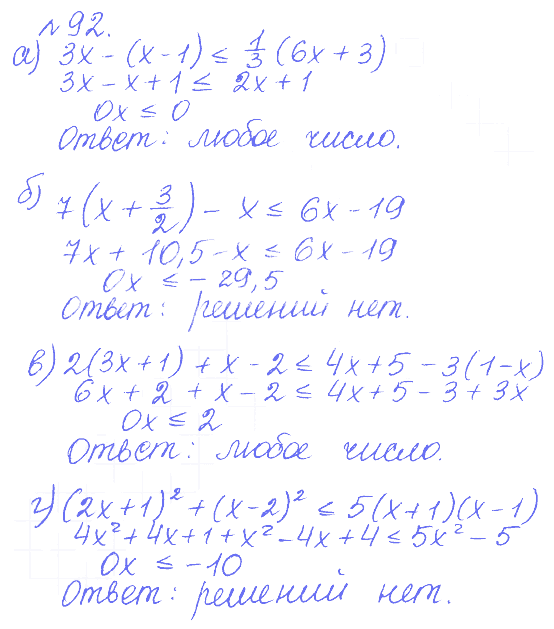 №92.
а) 3x - (x - 1) ≤ 1/3 (6x + 3)
3x - x + 1 ≤ 2x + 1
0x ≤ 0
Ответ: любое число.
б) 7(x + 3/2) - x ≤ 6x - 19
7x + 10,5 - x ≤ 6x - 19
0x ≤ - 29,5
Ответ: решений нет.
в) 2(3x + 1) + x - 2 ≤ 4x + 5 - 3(1 - x)
6x + 2 + x - 2 ≤ 4x + 5 - 3 + 3x
0x ≤ 2
Ответ: любое число.
г) (2x + 1)² + (x - 2)² ≤ 5(x + 1)(x - 1)
4x² + 4x + 1 + x² - 4x + 4 ≤ 5x² - 5
0x ≤ -10
Ответ: решений нет.